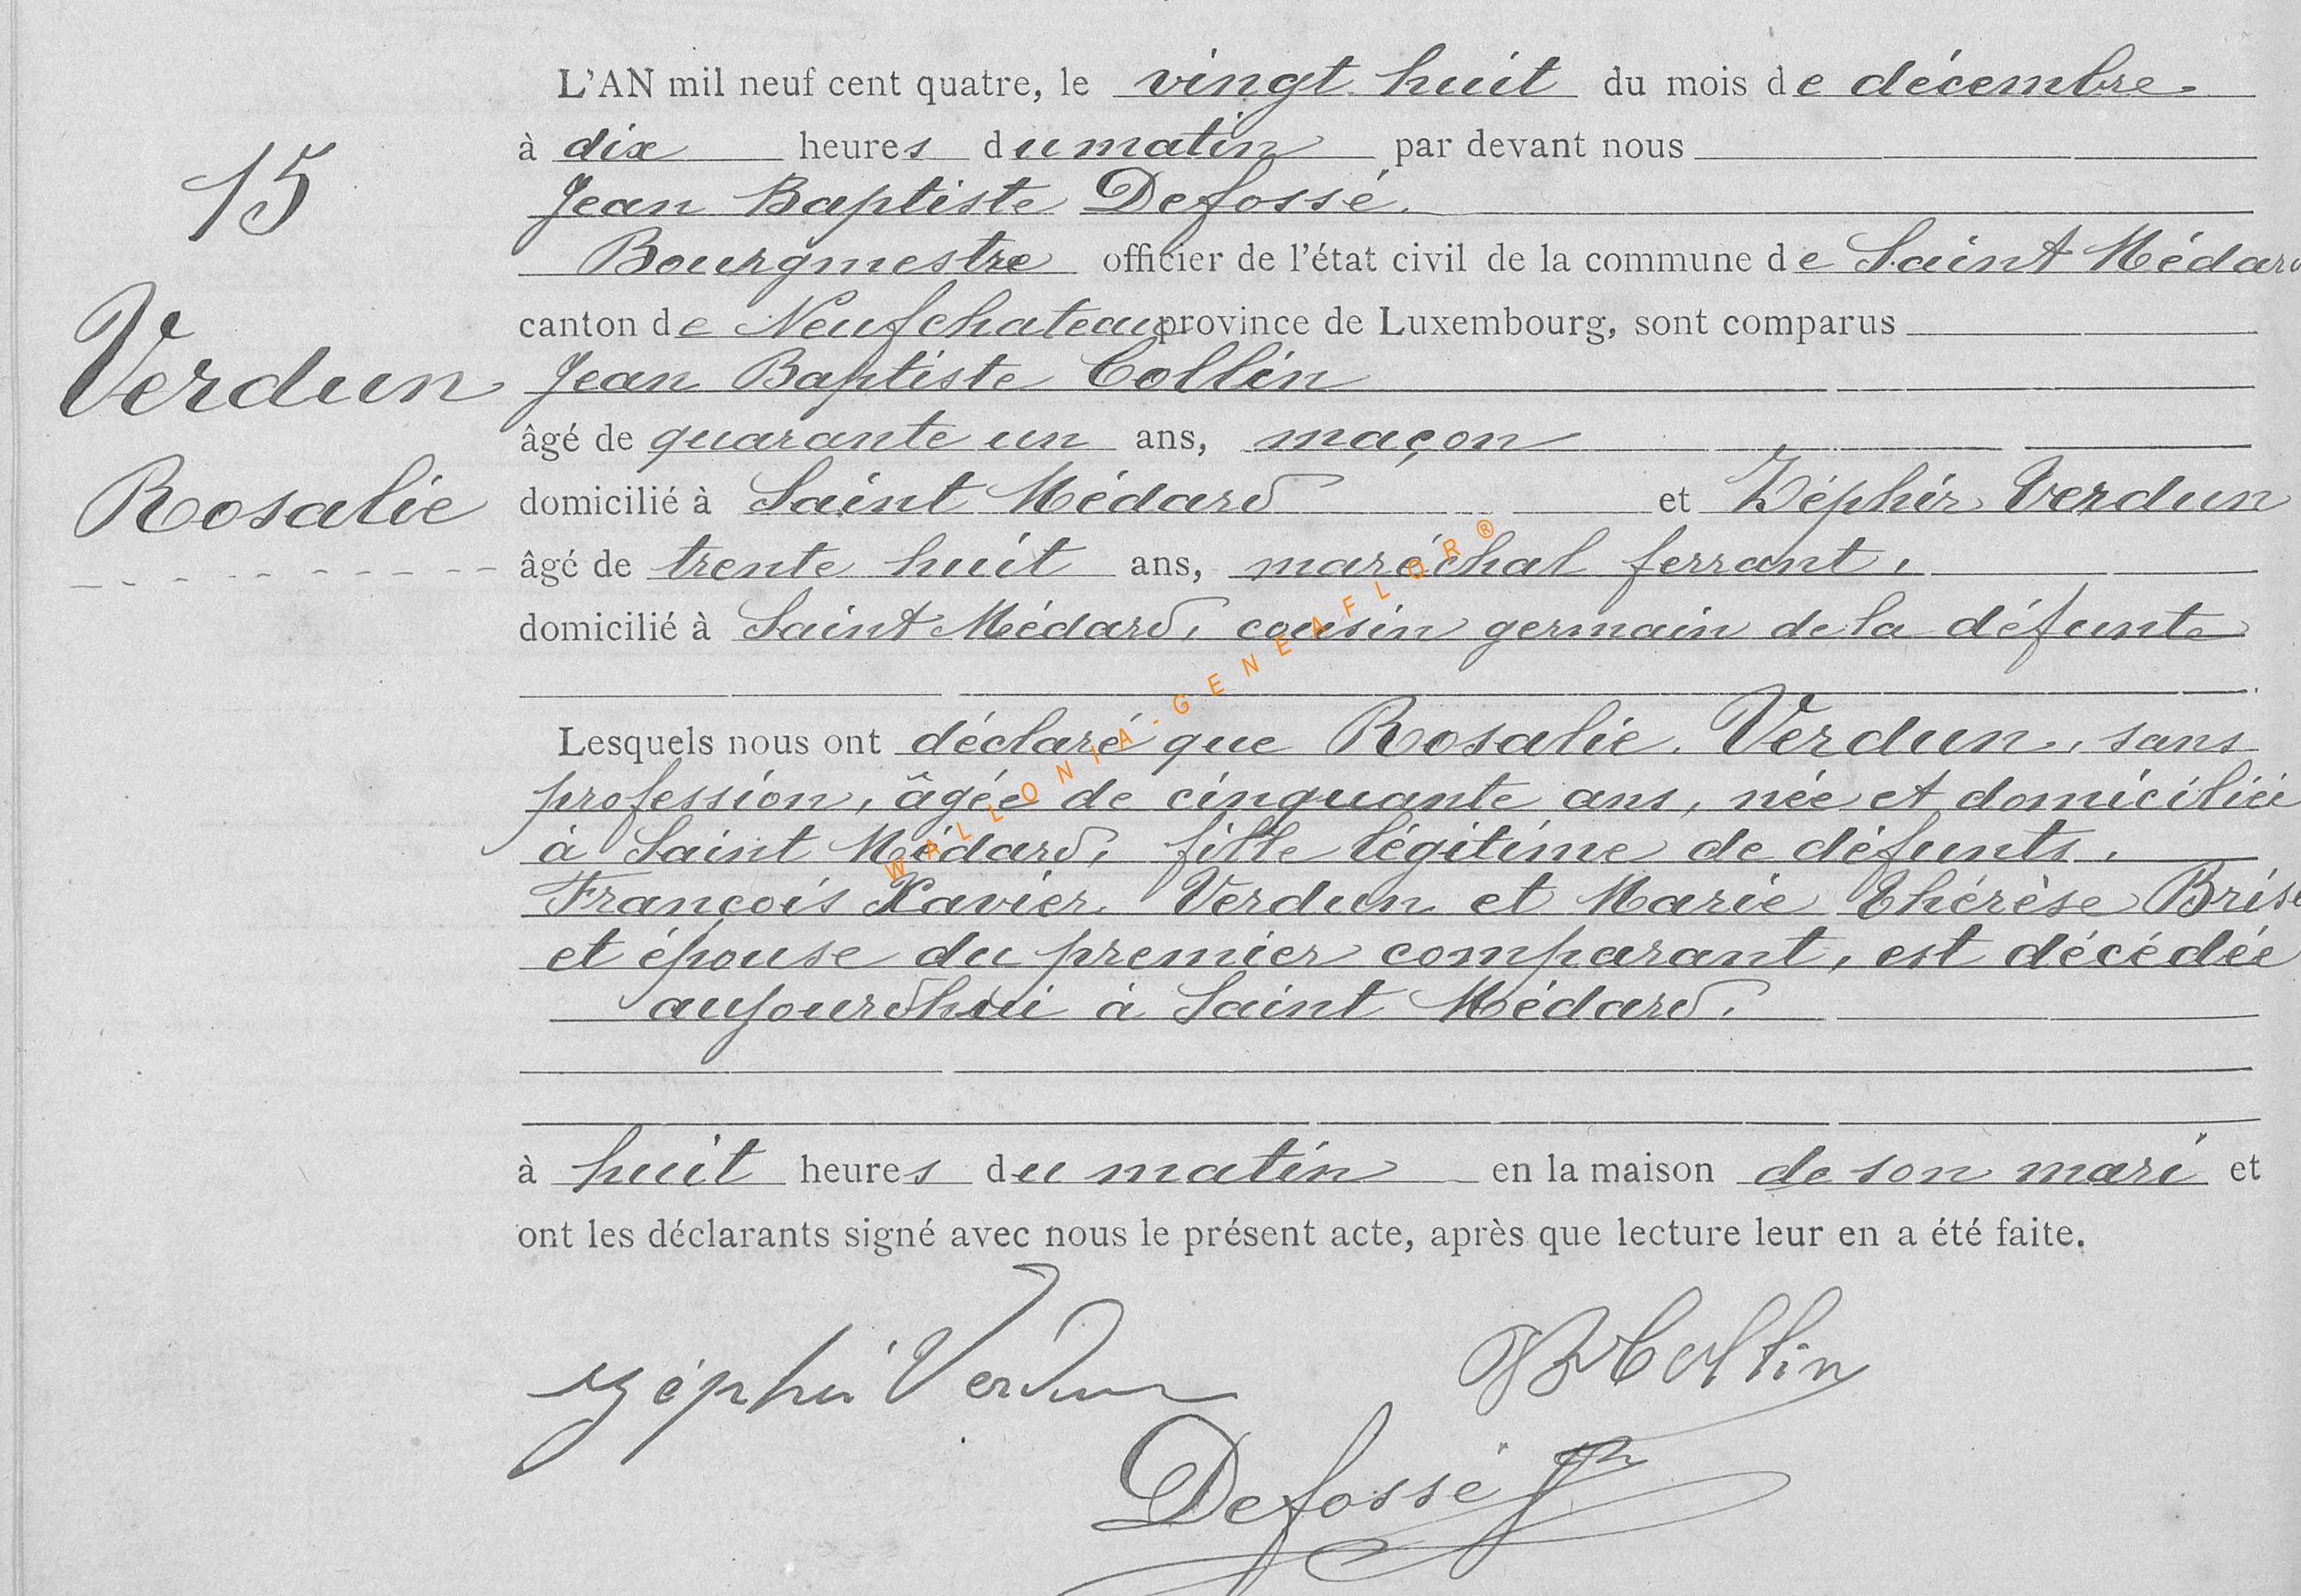 15
Verdun
Rosalie
L'AN mil neuf cent quatre, le vingt huit du mois de décembre
à dix heures du matin par devant nous
Jean Baptiste Defossé
Bourgmestre officier de l'état civil de la commune de Saint Médard
canton de Neufchateau province de Luxembourg, sont comparus
Jean Baptiste Collin
âgé de quarante un ans, maçon
domicilié à Saint Médard et Zéphir Verdun
âgé de trente huit ans, maréchal ferrant,
domicilié à Saint Médard, cousin germain de la défunte
Lesquels nous ont déclaré que Rosalie Verdun, sans
profession, âgée de cinquante ans, née et domiciliée
à Saint Médard, fille légitime de défunts,
François Xavier Verdun et Marie Thérèse
et épouse du premier comparant, est décédée
aujourdhui à Saint Médard.
à huit heures du matin en la maison de son mari et
ont les déclarants signé avec nous le présent acte, après que lecture leur en a été faite.
Zéphir Verdun
JB Collin
Defossé
WALLONIA-GENEAFLOR®